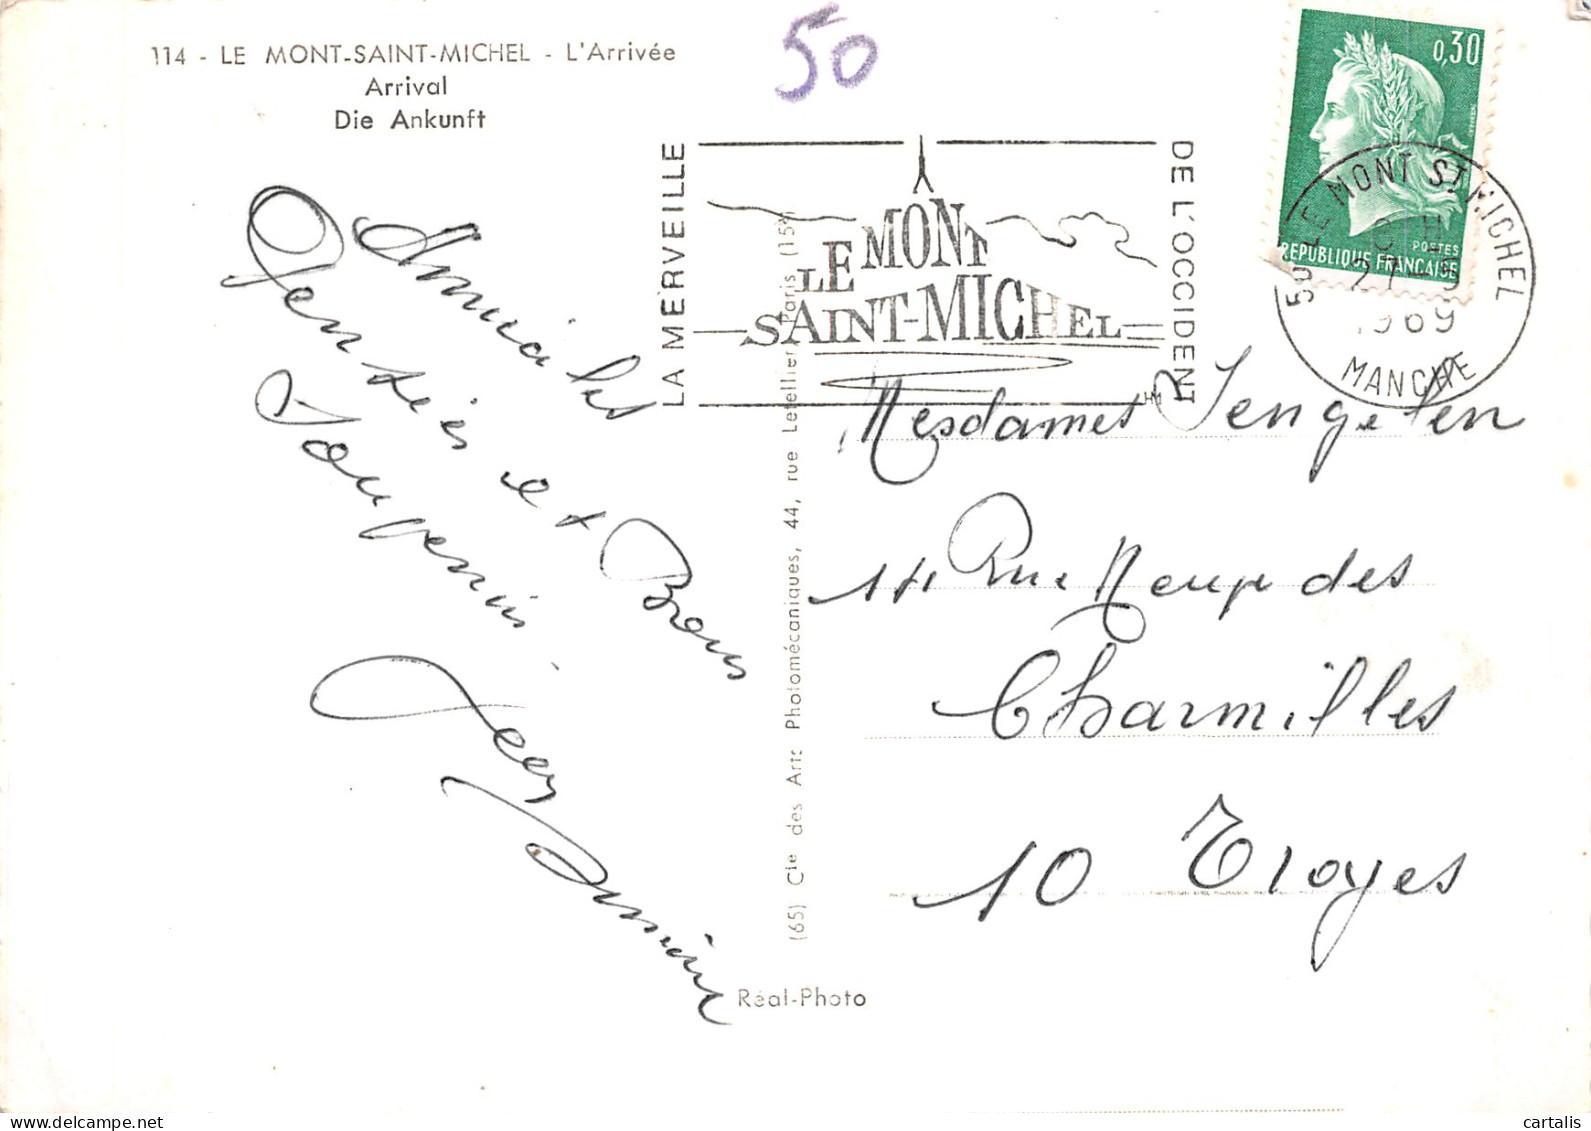 114 - LE MONT-SAINT-MICHEL - L'Arrivée
Arrival
Die Ankunft
50
0,30
POSTES
REPUBLIQUE FRANÇAISE
LA MERVEILLE
LE MONT
SAINT-MICHEL
DE L'OCCIDENT
50 LE MONT ST MICHEL
1969
MANCHE
Amicales
Pensées et Bons
Souvenirs
Mesdames
14 Rue des
Charmilles
10 Troyes
(65) Cie des Arts Photomécaniques, 44, rue Letellier, Paris (15e)
Réal-Photo
cartalis
www.delcampe.net